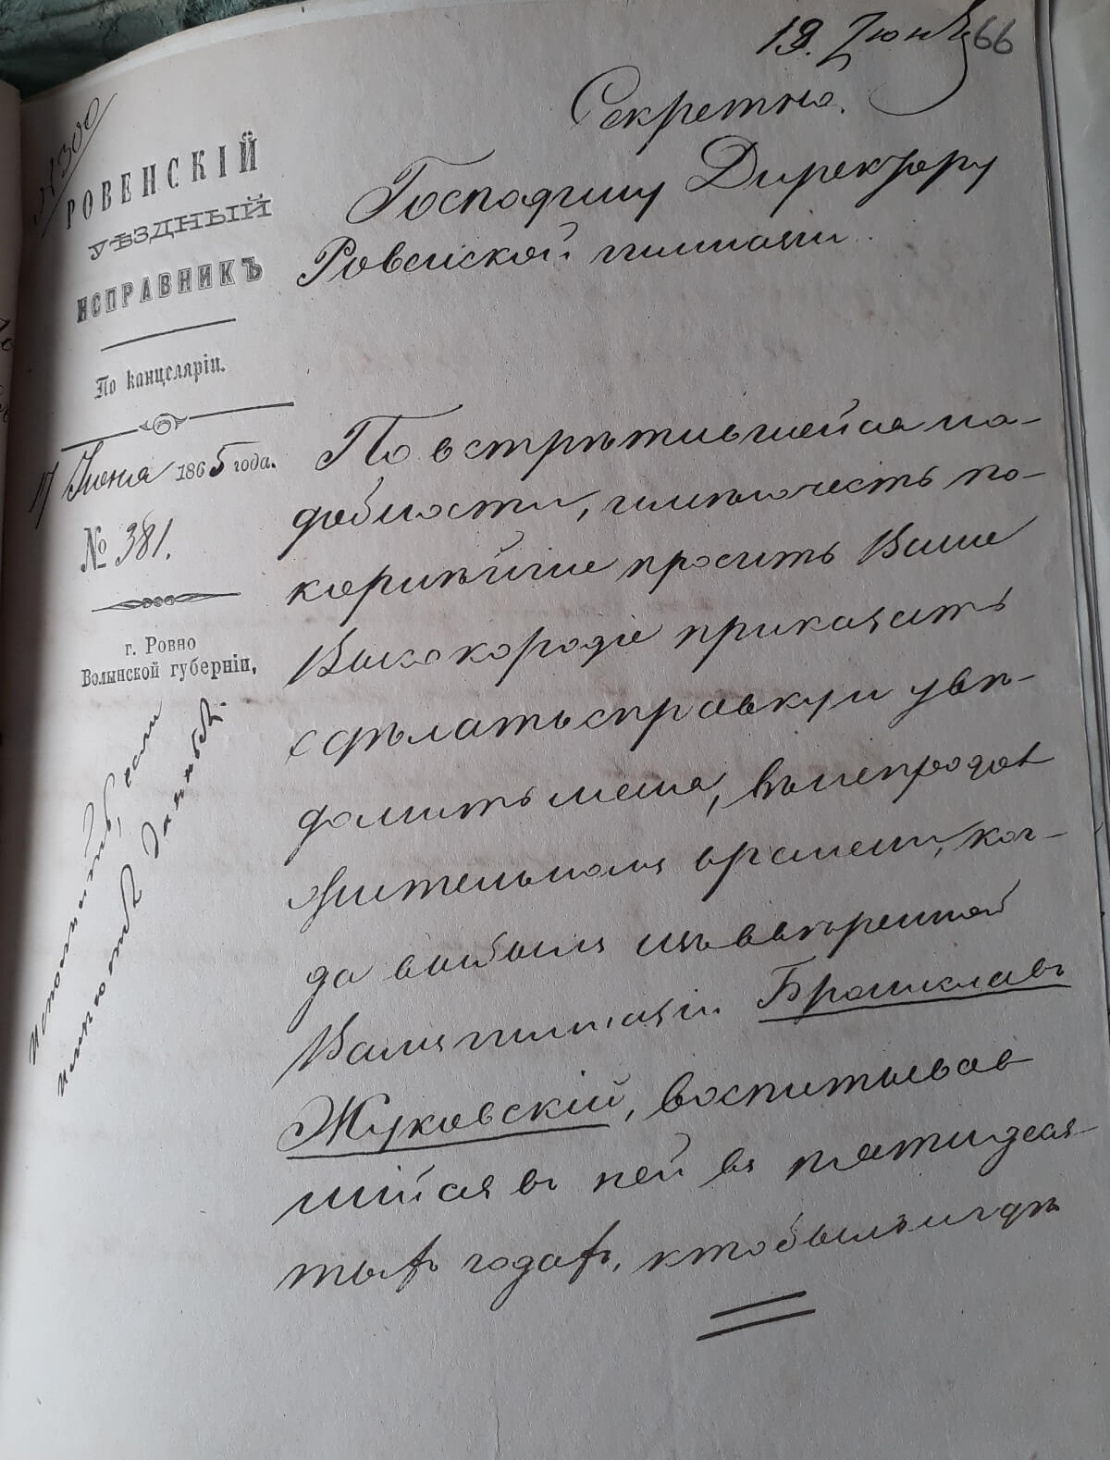 19. Іюня 66
Секретно.
№ 300
РОВЕНСКІЙ
УѢЗДНЫЙ
ИСПРАВНИКЪ
По канцеляріи.
17 Іюня 1865 года.
№ 381.
г. Ровно
Волынской губерніи,
Господину Директору
Ровенской гимназіи.
По встрѣтившейся на-
добности, имѣю честь по-
корнѣйше просить Ваше
Высокородіе приказать
сдѣлать справку и увѣ-
домить меня, въ непродол
жительномъ времени, ког-
да выбылъ изъ ввѣренной
Вамъ гимназіи Брониславъ
Жуковскій, воспитывав
шійся въ ней въ пятидеся-
тыхъ годахъ, кто былъ и гдѣ
Исполнить, если
имѣются данныя.